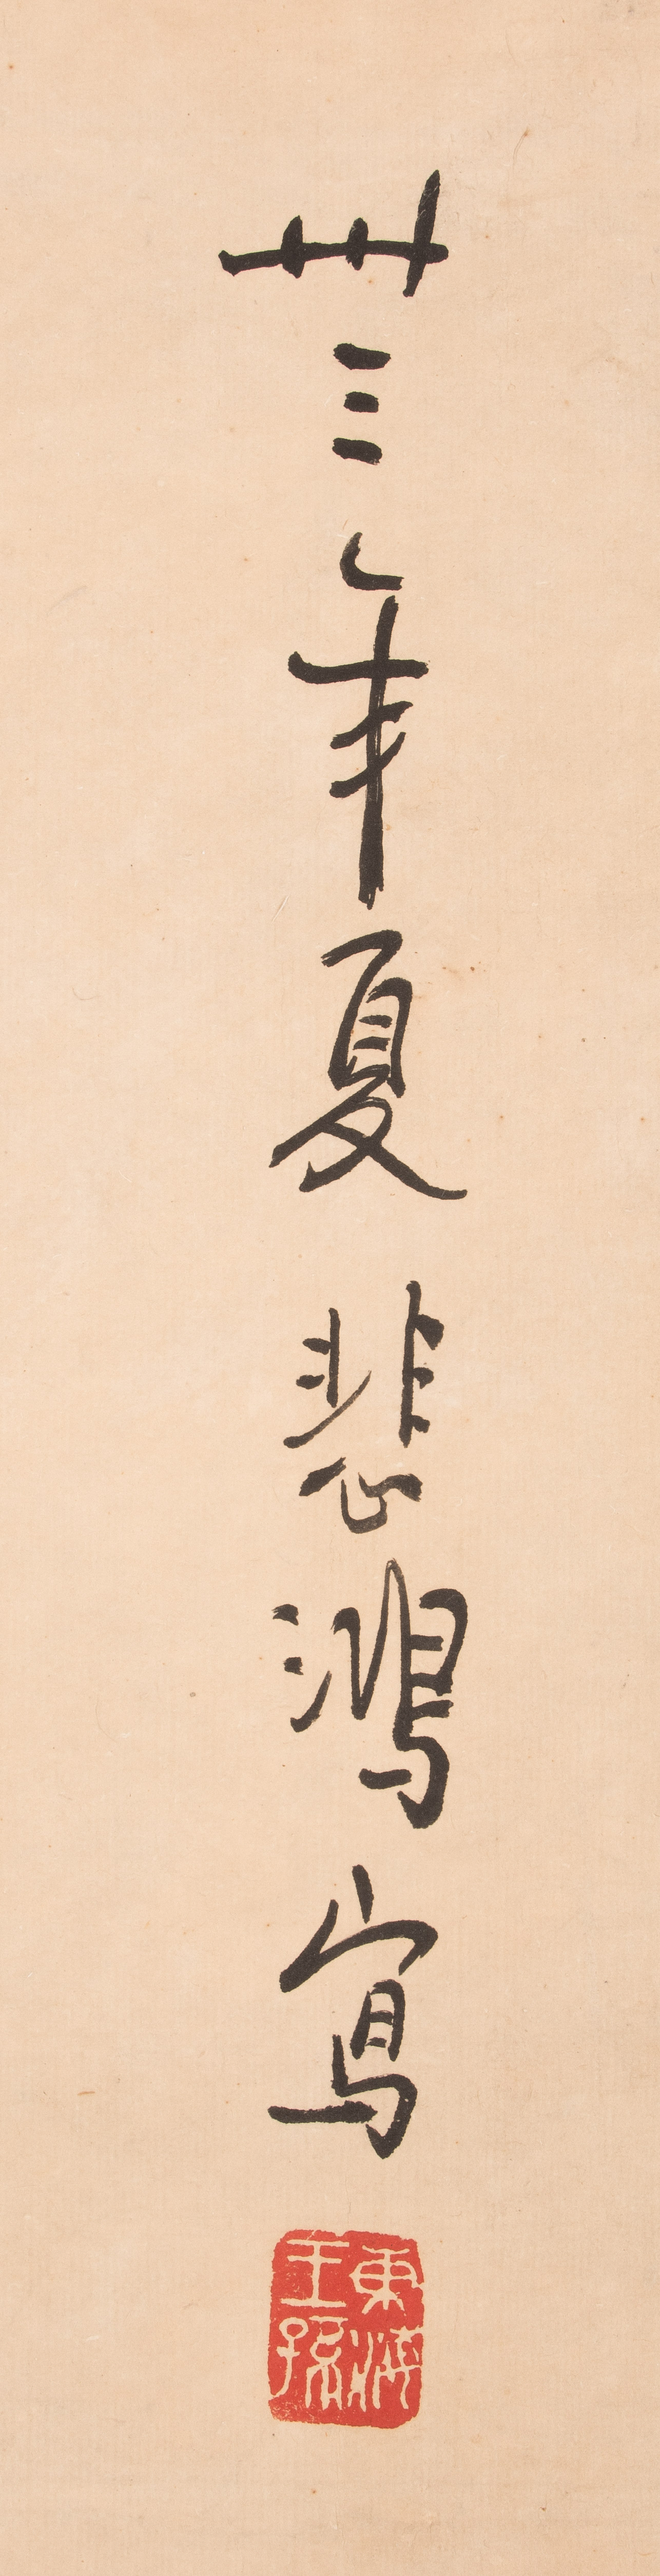 卅三年夏悲鴻寫
東海王孫